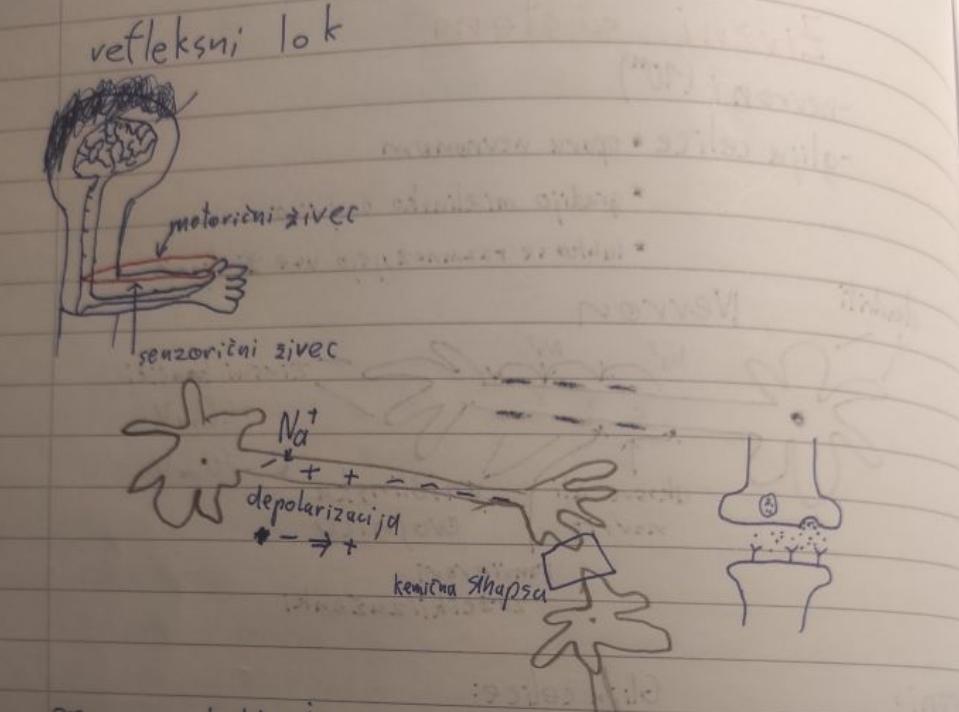 refleksni lok
motorični živec
senzorični živec
Na⁺
- + + - - - - -
depolarizacija
- → +
kemična sinapsa